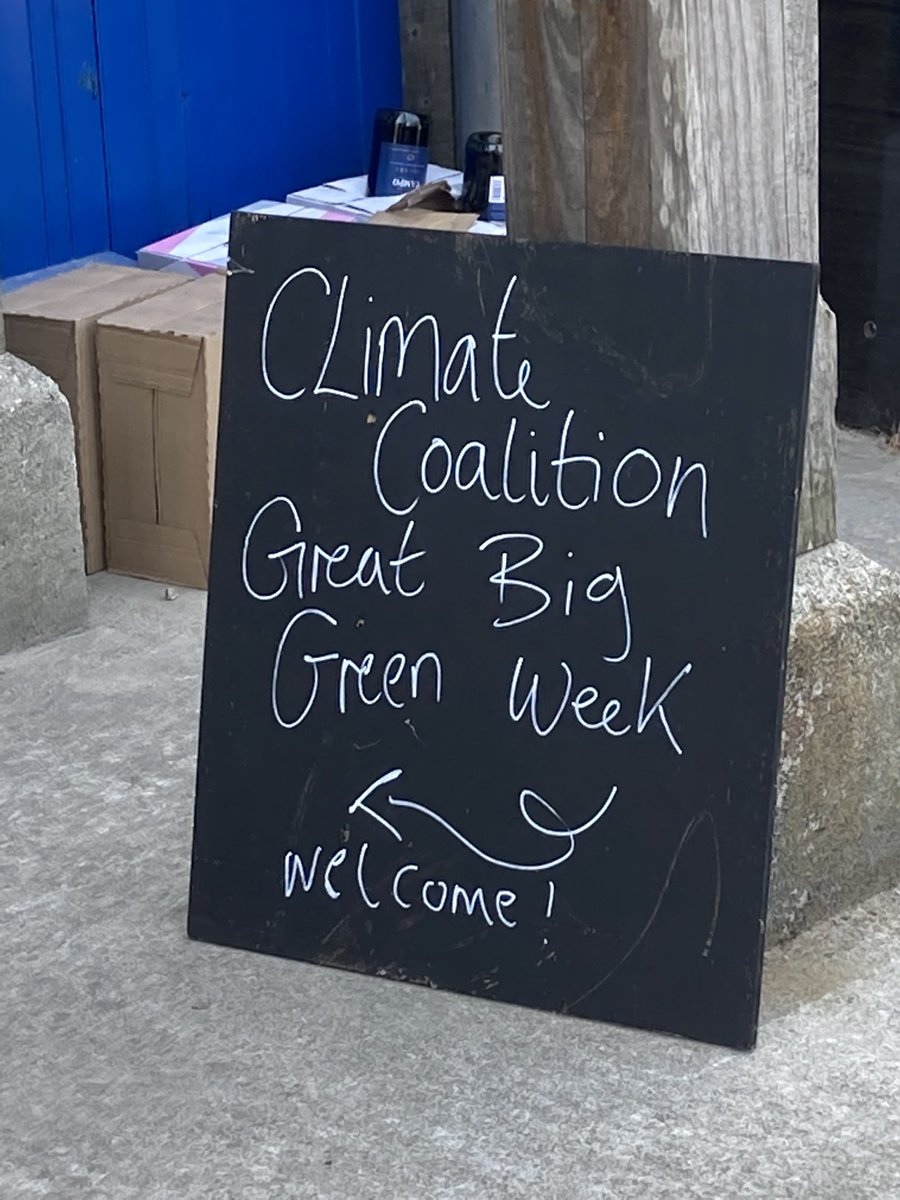 CLiMate
Coalition
Great Big
Green Week
welcome!